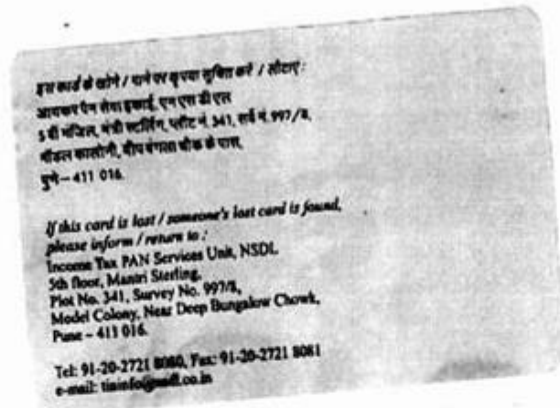 इस कार्ड के खोने / पाने पर कृपया सूचित करें / लौटाएं :
आयकर पैन सेवा इकाई, एन एस डी एल
5 वीं मंजिल, मंत्री स्टर्लिंग, प्लॉट नं. 341, सर्वे नं. 997/8,
मॉडल कालोनी, दीप बंगला चौक के पास,
पुणे – 411 016.
If this card is lost / someone's lost card is found,
please inform / return to :
Income Tax PAN Services Unit, NSDL
5th floor, Mantri Sterling,
Plot No. 341, Survey No. 997/8,
Model Colony, Near Deep Bungalow Chowk,
Pune – 411 016.
Tel: 91-20-2721 8080, Fax: 91-20-2721 8081
e-mail: tininfo@nsdl.co.in